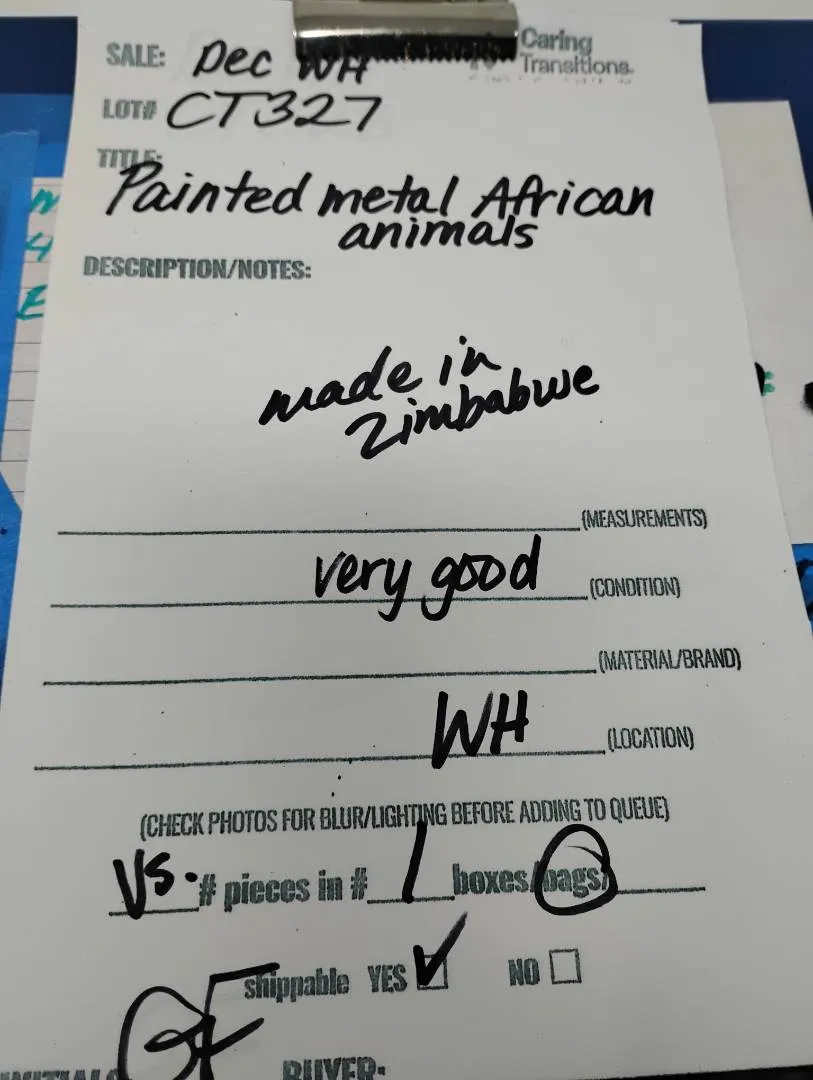 SALE: Dec WH
Caring
Transitions.
LOT# CT327
TITLE:
Painted metal African
animals
DESCRIPTION/NOTES:
made in
Zimbabwe
(MEASUREMENTS)
very good (CONDITION)
(MATERIAL/BRAND)
WH (LOCATION)
(CHECK PHOTOS FOR BLUR/LIGHTING BEFORE ADDING TO QUEUE)
VS. # pieces in # 1 boxes/bags/
shippable YES ✓ NO
INITIALS
BUYER: